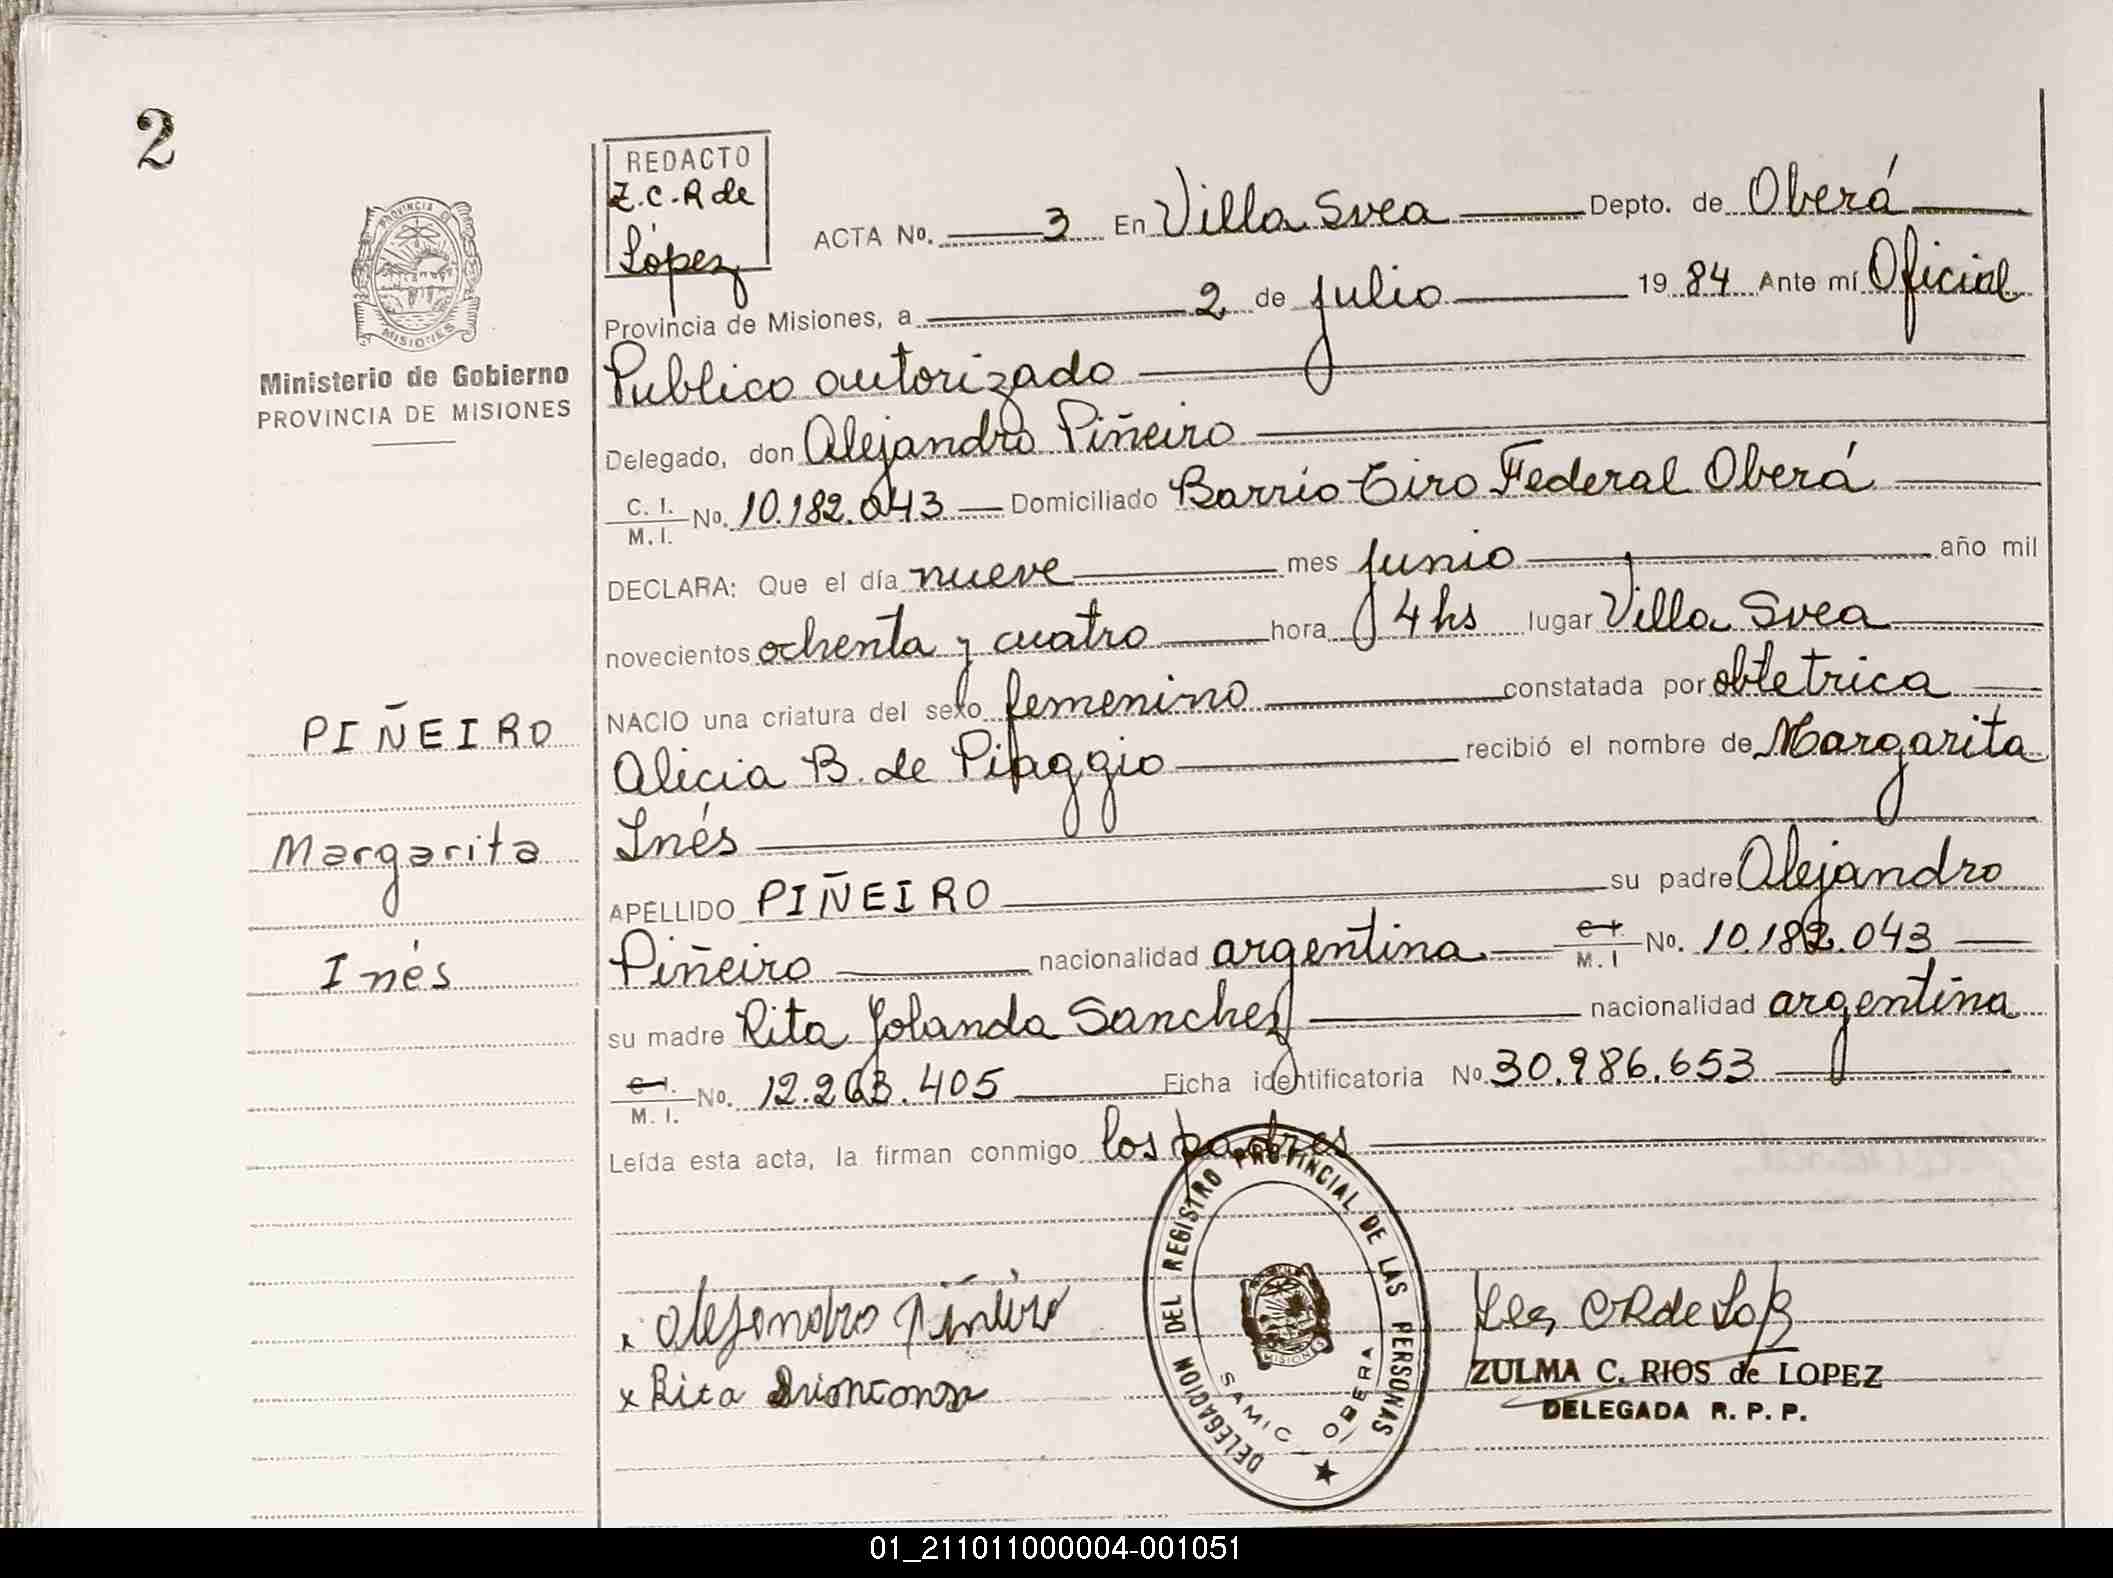 2
REDACTO
Z.C.R de
López
PROVINCIA DE
MISIONES
Ministerio de Gobierno
PROVINCIA DE MISIONES
ACTA No. 3 En Villa Svea Depto. de Oberá
Provincia de Misiones, a 2 de julio 1984 Ante mí Oficial
Publico autorizado
Delegado, don Alejandro Piñeiro
C. I. / M. I. No. 10.182.043 Domiciliado Barrio Tiro Federal Oberá
DECLARA: Que el día nueve mes junio año mil
novecientos ochenta y cuatro hora 4 hs lugar Villa Svea
NACIO una criatura del sexo femenino constatada por obtetrica
Alicia B. de Piaggio recibió el nombre de Margarita
Inés
APELLIDO PIÑEIRO su padre Alejandro
Piñeiro nacionalidad argentina C. I. / M. I No. 10.182.043
su madre Rita Yolanda Sanchez nacionalidad argentina
C. I. / M. I. No. 12.263.405 Ficha identificatoria No. 30.986.653
Leída esta acta, la firman conmigo los padres
PIÑEIRO
Margarita
Inés
x Alejandro Piñeiro
x Rita
DELEGACION DEL REGISTRO PROVINCIAL DE LAS PERSONAS
MISIONES
SAMIC - OBERA
ZULMA C. RIOS de LOPEZ
DELEGADA R. P. P.
01_211011000004-001051